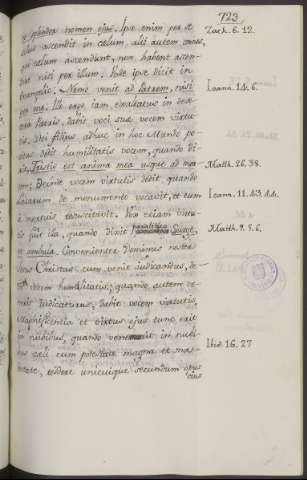 723
et splendor nomen ejus. Ipse enim per se
ipsum ascendit in cælum, alii autem omnes,
qui cælum ascendunt, non habent ascen-
sum nisi per illum. Unde ipse dicit in
Evangelio. Nemo venit ad Patrem, nisi
per me. Ille ergo jam exaltatus in dex-
tera Patris, dabit voci suæ vocem virtu-
tis. Dei filius, adhuc in hoc Mundo po-
situs dedit humilitatis vocem, quando di-
xit. Tristis est anima mea usque ad mor-
tem; Deinde vocem virtutis dedit quando
Lazarum de monumento vocavit, et eum
a mortuis resuscitavit. Vox etiam virtu-
tis fuit illa, quando dixit paralitico Surge,
et ambula. Convenienter Dominus noster
Jesus Christus cum venit judicandus, de-
dit vocem humilitatis; quando autem ve-
nerit judicaturus, dabit vocem virtutis.
Magnificentia et virtus ejus tunc erit
in nubibus, quando veniet in nubi-
bus cæli cum potestate magna et ma-
jestate, reddere unicuique secundum opus
ejus
Zach. 6. 12.
Joann. 14. 6.
Math. 26. 38.
Joann. 11. 43. 44.
Math. 9. 5. 6.
Ibid. 16. 27